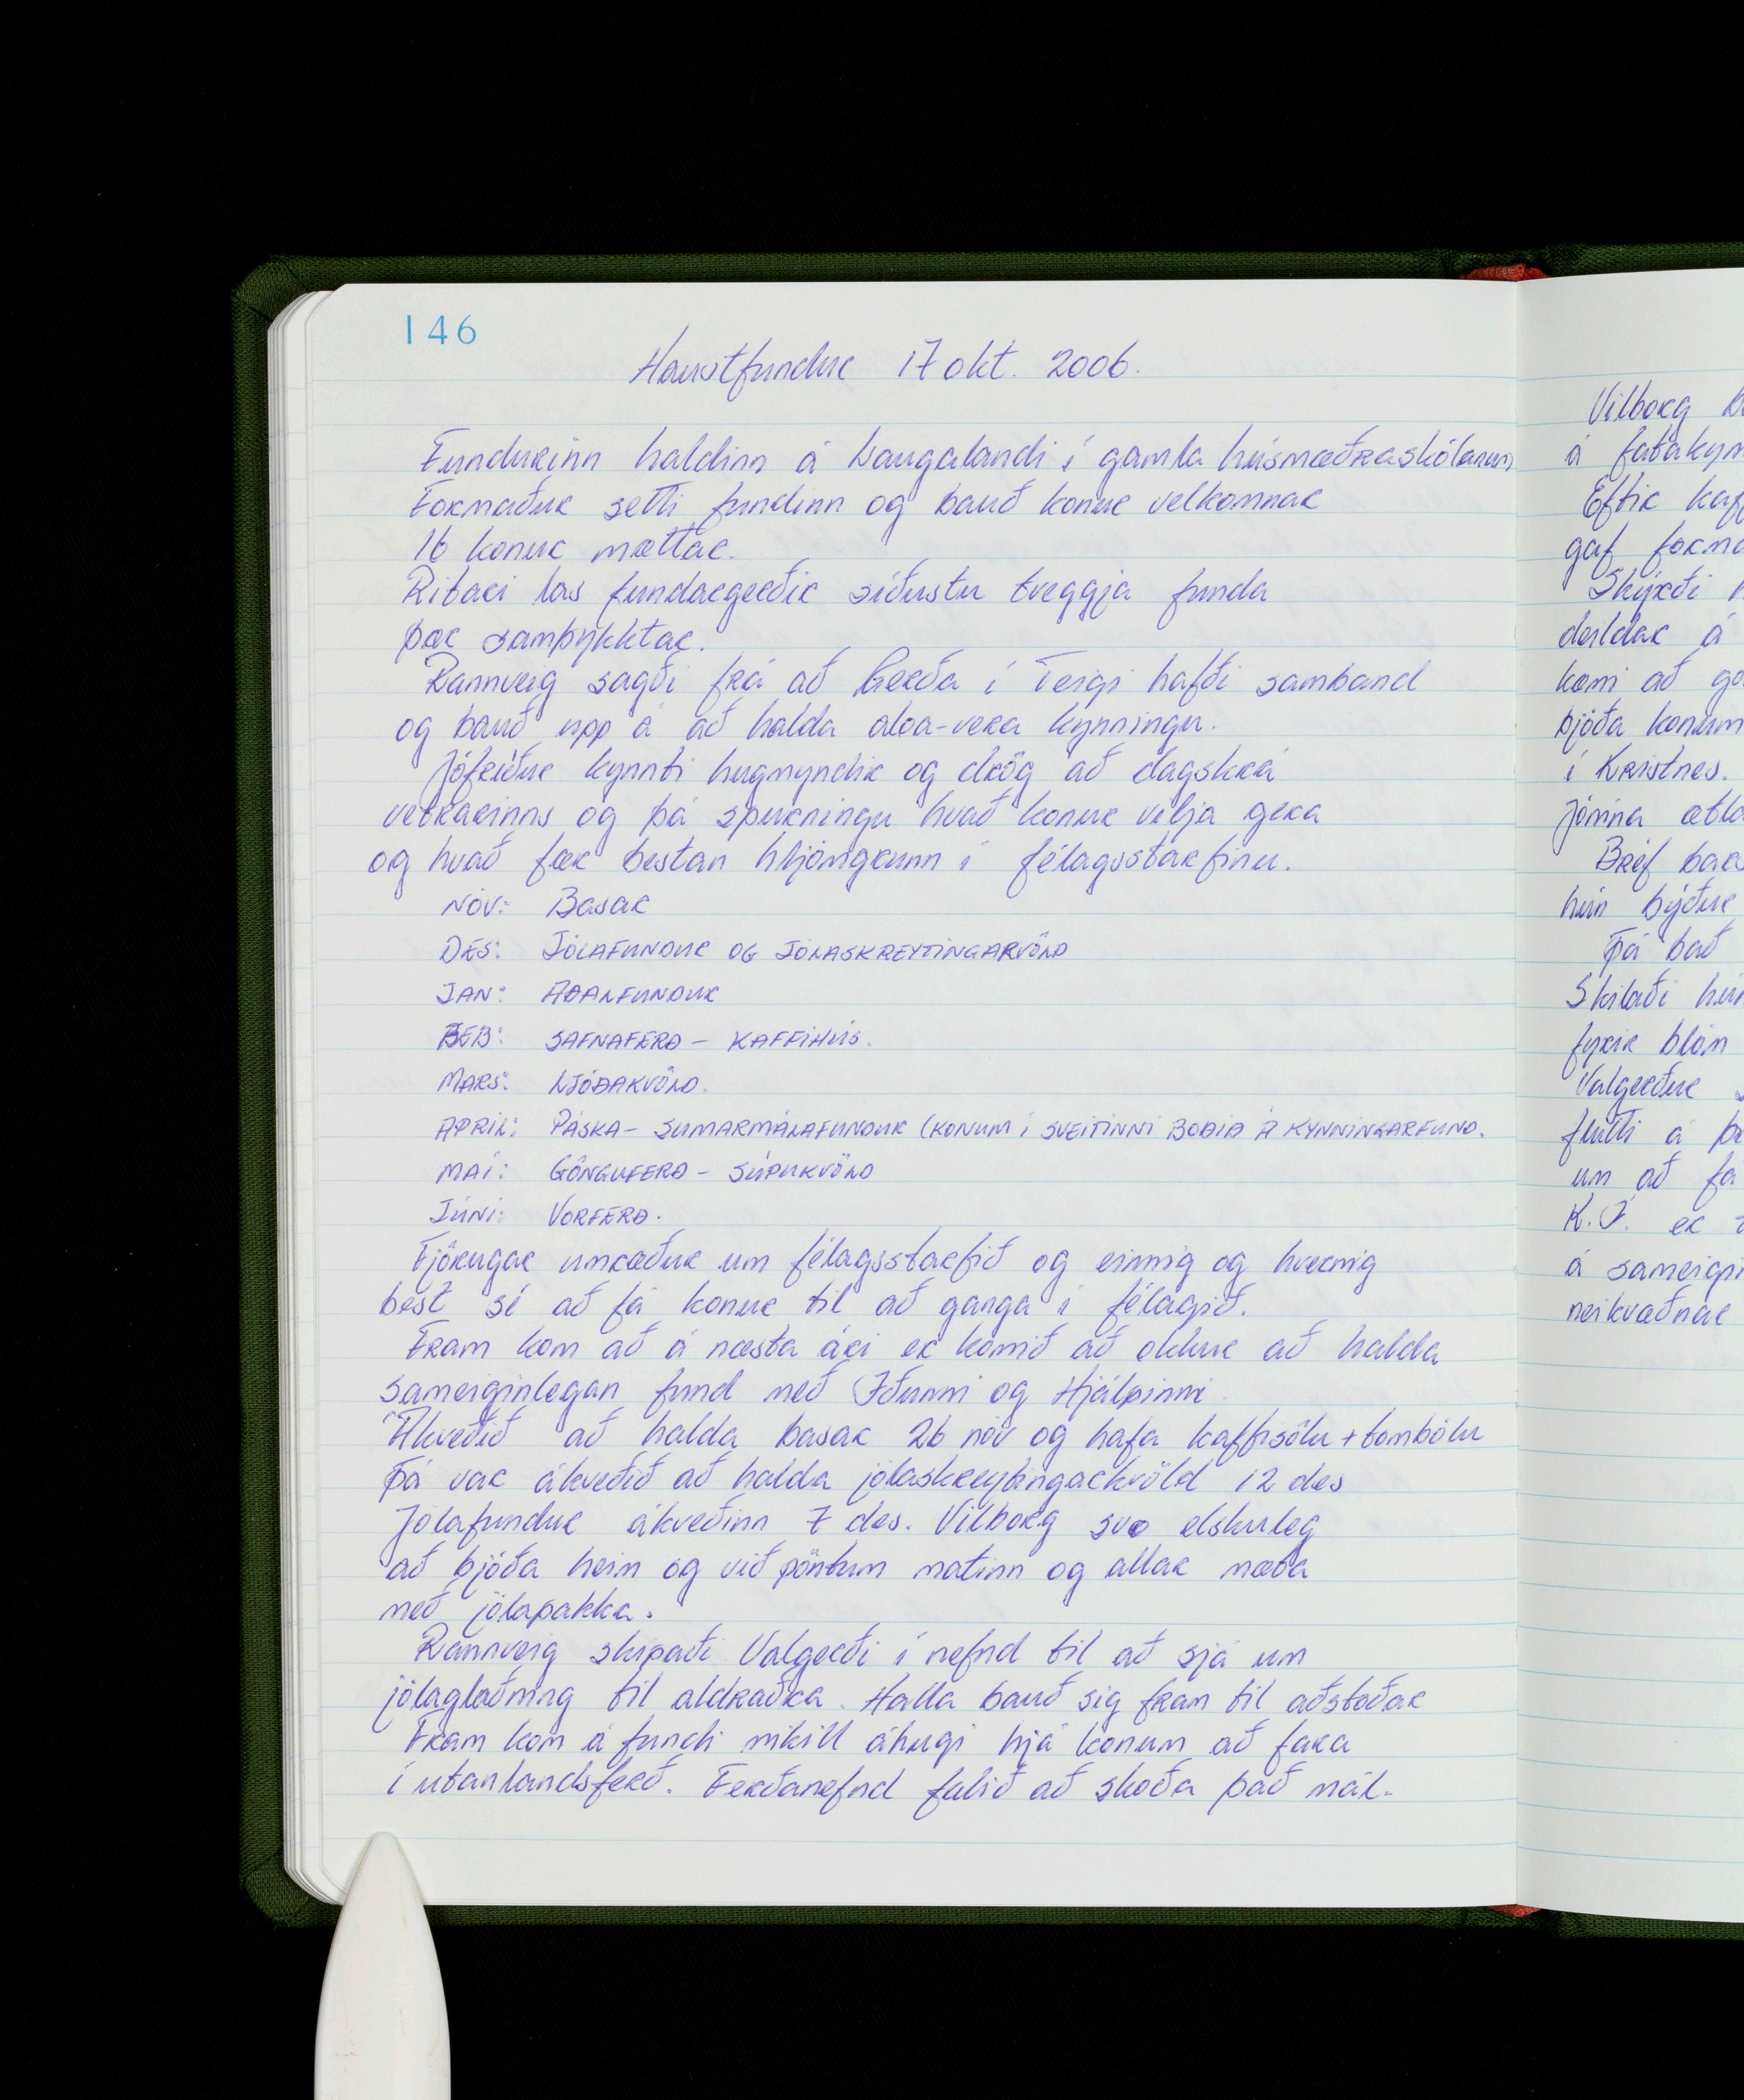 146
Haustfundur 17 okt. 2006.
Fundurinn haldinn á Laugalandi í gamla húsmæðraskólanum
Formaður setti fundinn og bauð konur velkomnar
16 konur mættar.
Ritari las fundargerðir síðustu tveggja funda
þær samþykktar.
Rannveig sagði frá að Gerða í Teigi hafði samband
og bauð upp á að halda aloa-vera kynningu.
Jófríður kynnti hugmyndir og drög að dagskrá
vetrarinns og þá spurningu hvað konur vilja gera
og hvað fær bestan hljómgrunn í félagsstarfinu.
Nóv: Basar
DES: JÓLAFUNDUR OG JÓLASKREYTINGARVÖLD
JAN: AÐALFUNDUR
FEB: SAFNAFERÐ - KAFFIHÚS.
MARS: LJÓÐAKVÖLD.
APRIL: PÁSKA - SUMARMÁLAFUNDUR (KONUM Í SVEITINNI BOÐIÐ Á KYNNINGARFUND.
MAÍ: GÖNGUFERÐ - SÚPUKVÖLD
JÚNÍ: VORFERÐ.
Fjörugar umræður um félagsstarfið og einnig og hvernig
best sé að fá konur til að ganga í félagið.
Fram kom að á næsta ári er komið að okkur að halda
sameiginlegan fund með Iðunni og Hjálpinni
Ákveðið að halda basar 26 nóv og hafa kaffisölu + tombólu
Þá var ákveðið að halda jólaskreytingarkvöld 12 des
Jólafundur ákveðinn 7 des. Vilborg svo elskuleg
að bjóða heim og við pöntum matinn og allar mæta
með jólapakka.
Rannveig skipaði Valgerði í nefnd til að sjá um
jólaglaðning til aldraðra. Halla bauð sig fram til aðstoðar
Fram kom á fundi mikill áhugi hjá konum að fara
í utanlandsferð. Ferðanefnd falið að skoða það mál.
Vilborg
á
Eftir
gaf
Skýrði
deildar á
kæmi að
bjóða konum
í Kristnes.
Jónína
Bréf
hún býður
Þá bað
Skilaði
fyrir blóm
Valgerður
flutti á
um að fá
K.F. er
á
neikvæðnar